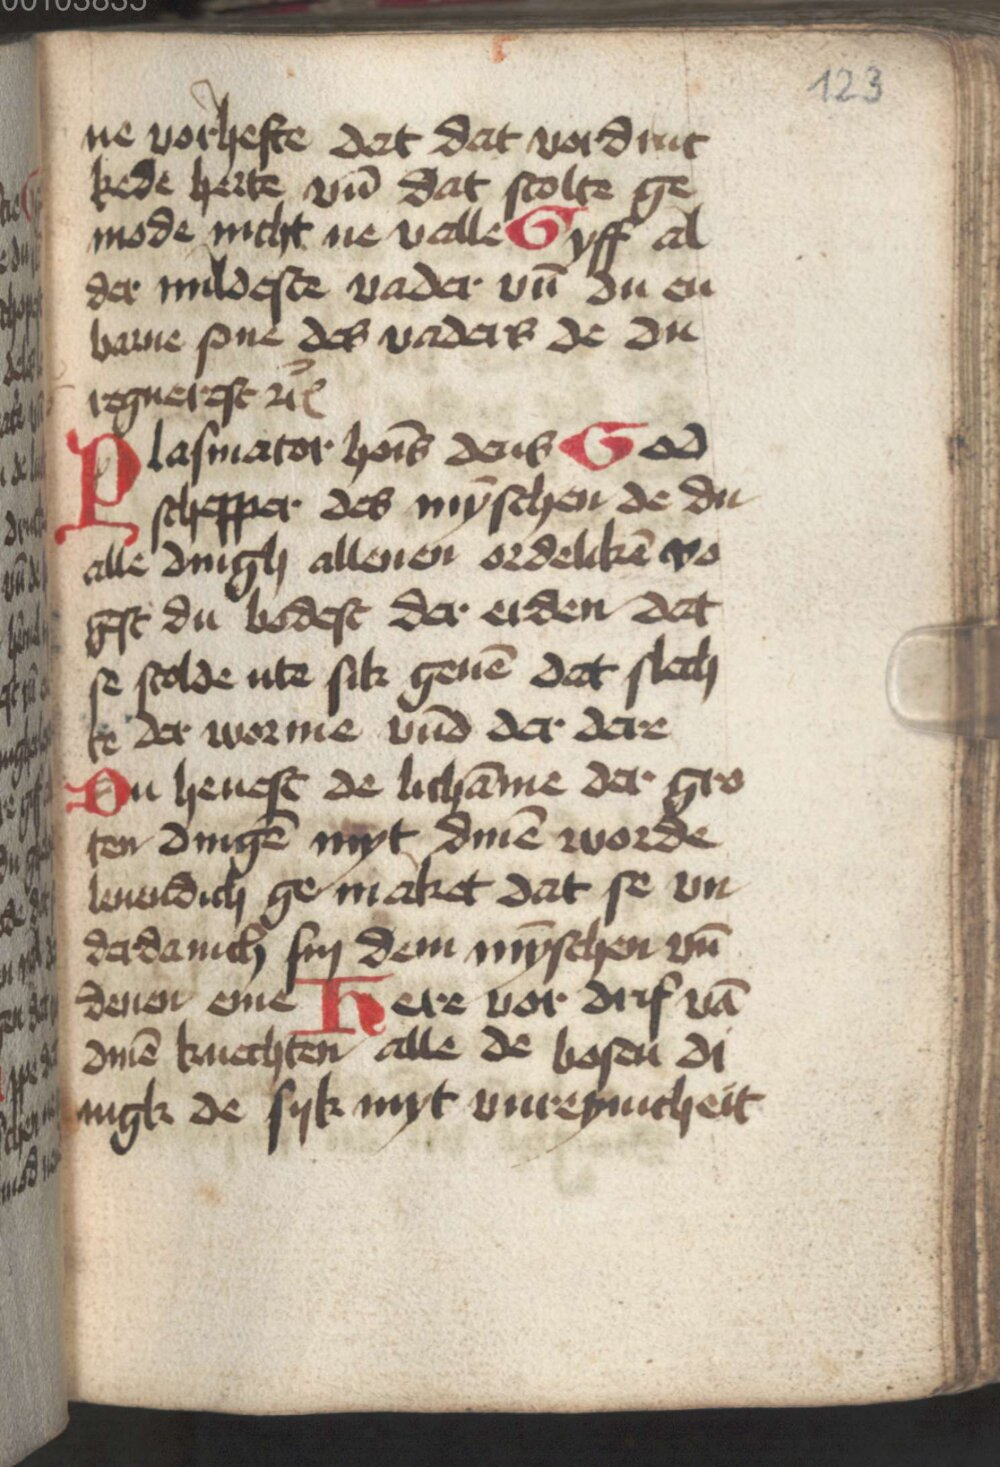 00103835
123
ne vorheste dat dat vordruc
kede herte vn̄ dat stolte ge
mode nicht ne valle Gyff al
der mildeste vader vn̄ du en
barne sone des vaders de du
regnerest
Plasmator hoīs deus God
schepper des mȳschen de du
alle dingh allenen ordelikē vo
gest du bodest der erden dat
se scolde ute sik geuē dat slech
te der worme vn̄d der dere
Du heuest de lichāme der gro
ten dingē myt dinē worde
leuendich ge maket dat se vn
derdanich sin dem mȳschen vn̄
denen eme Here vor drif vā
dinē knechten alle de bosen di
ngk de syk myt vnreynicheit